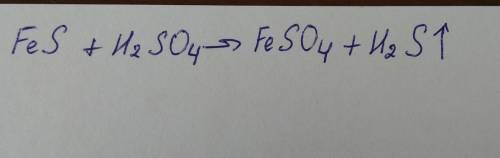 FeS + H₂SO₄ → FeSO₄ + H₂S↑